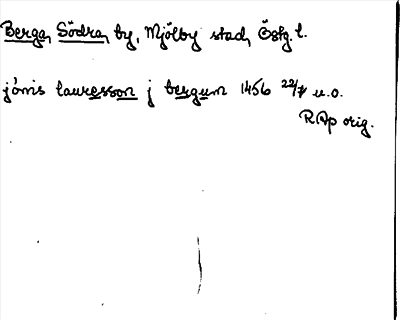 Berga, Södra, by, Mjölby stad, Östg. l.
jönis lauresson j bergum 1456 22/7 u.o.
RAp orig.